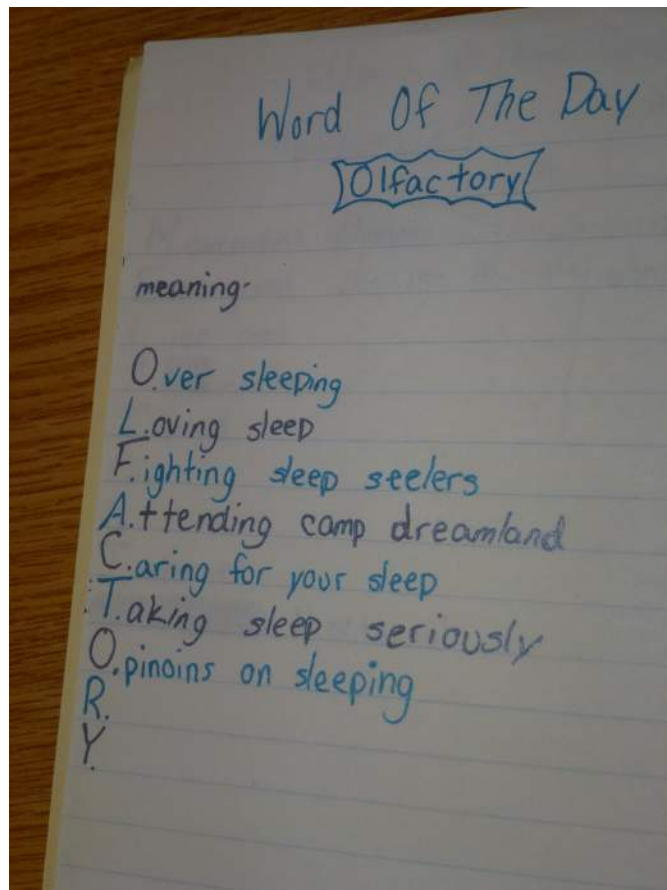 Word Of The Day
Olfactory
meaning-
O.ver sleeping
L.oving sleep
F.ighting sleep seelers
A.ttending camp dreamland
C.aring for your sleep
T.aking sleep seriously
O.pinoins on sleeping
R.
Y.